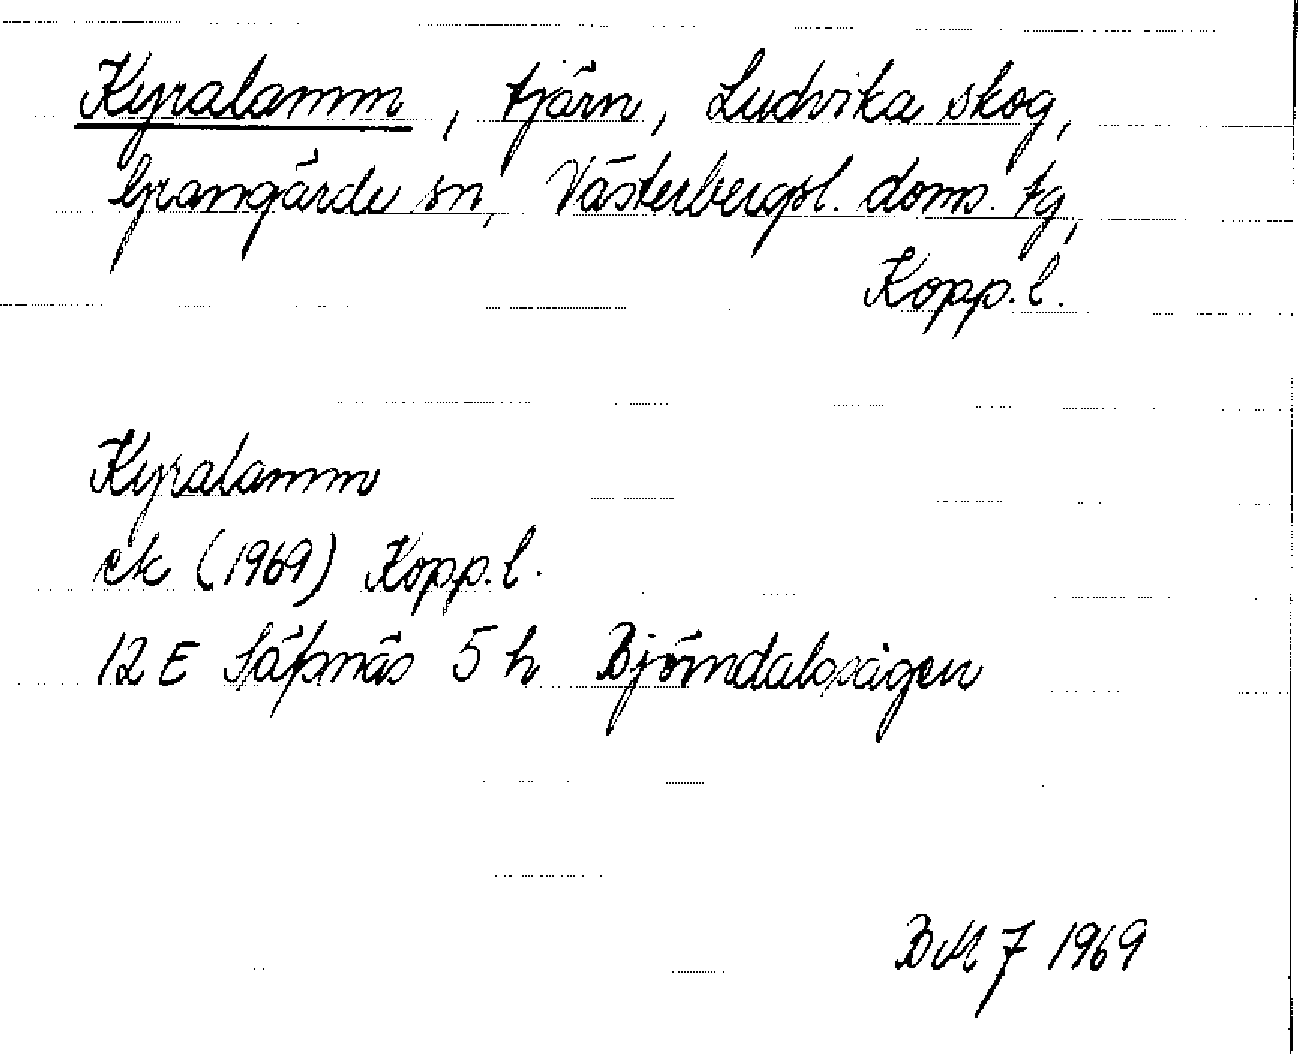 Kyralamm, tjärn, Ludvika skog,
Grangärde sn, Västerbergsl. doms. tg,
Kopp. l.
Kyralamm
ek (1969) Kopp. l.
12 E Säfsnäs 5 h Björndalsvägen
BM 7 1969